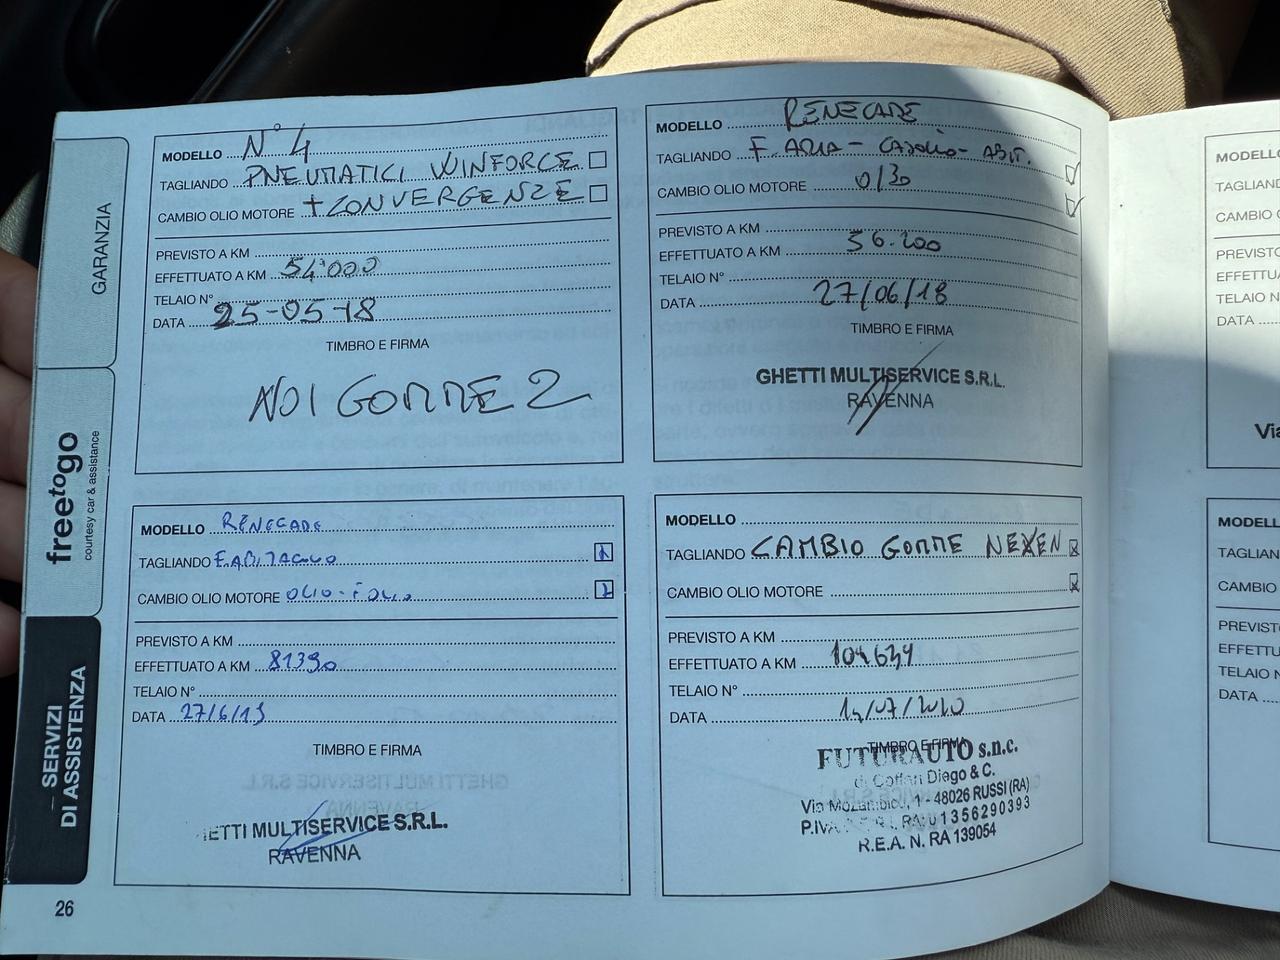 GARANZIA
freetogo
courtesy car & assistance
SERVIZI
DI ASSISTENZA
26
MODELLO N° 4
TAGLIANDO PNEUMATICI WINFORCE
CAMBIO OLIO MOTORE + CONVERGENZE
PREVISTO A KM
EFFETTUATO A KM 54'000
TELAIO N°
DATA 25-05-18
TIMBRO E FIRMA
NOI GOMME 2
MODELLO RENEGADE
TAGLIANDO F. ARIA - GASOLIO - ABIT.
CAMBIO OLIO MOTORE 0/30
PREVISTO A KM
EFFETTUATO A KM 56.200
TELAIO N°
DATA 27/06/18
TIMBRO E FIRMA
GHETTI MULTISERVICE S.R.L.
RAVENNA
MODELLO RENEGADE
TAGLIANDO F. ABITACOLO
CAMBIO OLIO MOTORE OLIO - F. OLIO
PREVISTO A KM
EFFETTUATO A KM 81390
TELAIO N°
DATA 27/6/19
TIMBRO E FIRMA
GHETTI MULTISERVICE S.R.L.
RAVENNA
MODELLO
TAGLIANDO CAMBIO GOMME NEXEN
CAMBIO OLIO MOTORE
PREVISTO A KM
EFFETTUATO A KM 104634
TELAIO N°
DATA 14/07/2020
TIMBRO E FIRMA
FUTURAUTO s.n.c.
di Diego & C.
Via Mozambico, 1 - 48026 RUSSI (RA)
P.IVA RA 01356290393
R.E.A. N. RA 139054
MODELLO
TAGLIANDO
CAMBIO O
PREVISTO
EFFETTUA
TELAIO N
DATA
Via
MODELL
TAGLIAN
CAMBIO
PREVIST
EFFETTU
TELAIO N
DATA